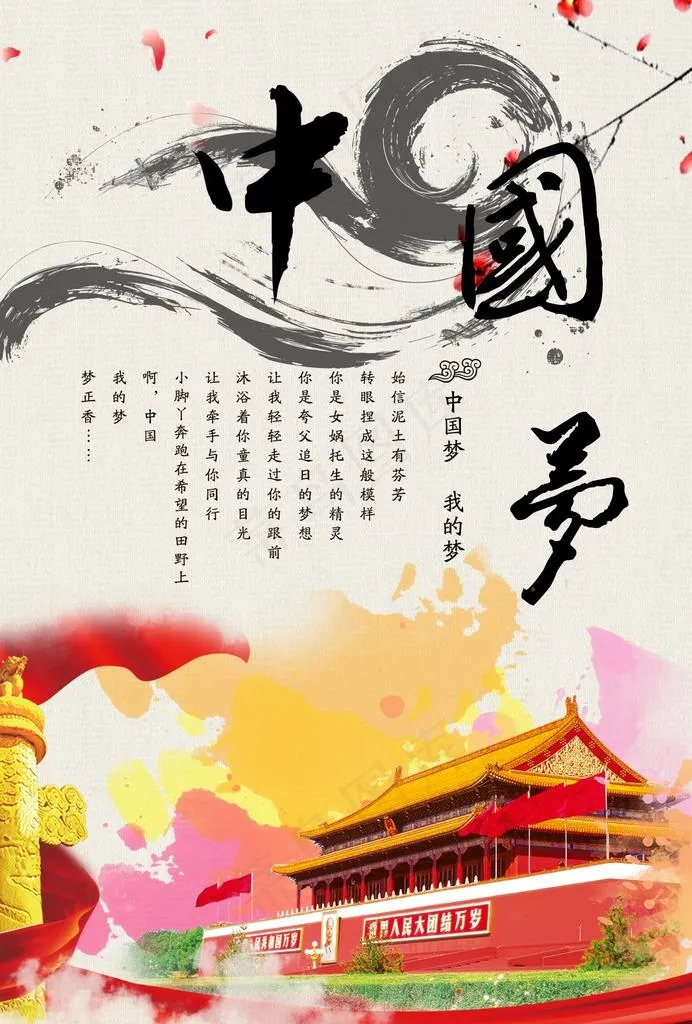 中國夢
中国梦 我的梦
始信泥土有芬芳
转眼捏成这般模样
你是女娲托生的精灵
你是夸父追日的梦想
让我轻轻走过你的跟前
沐浴着你童真的目光
让我牵手与你同行
小脚丫奔跑在希望的田野上
啊，中国
我的梦
梦正香……
人民共和国万岁
界人民大团结万岁